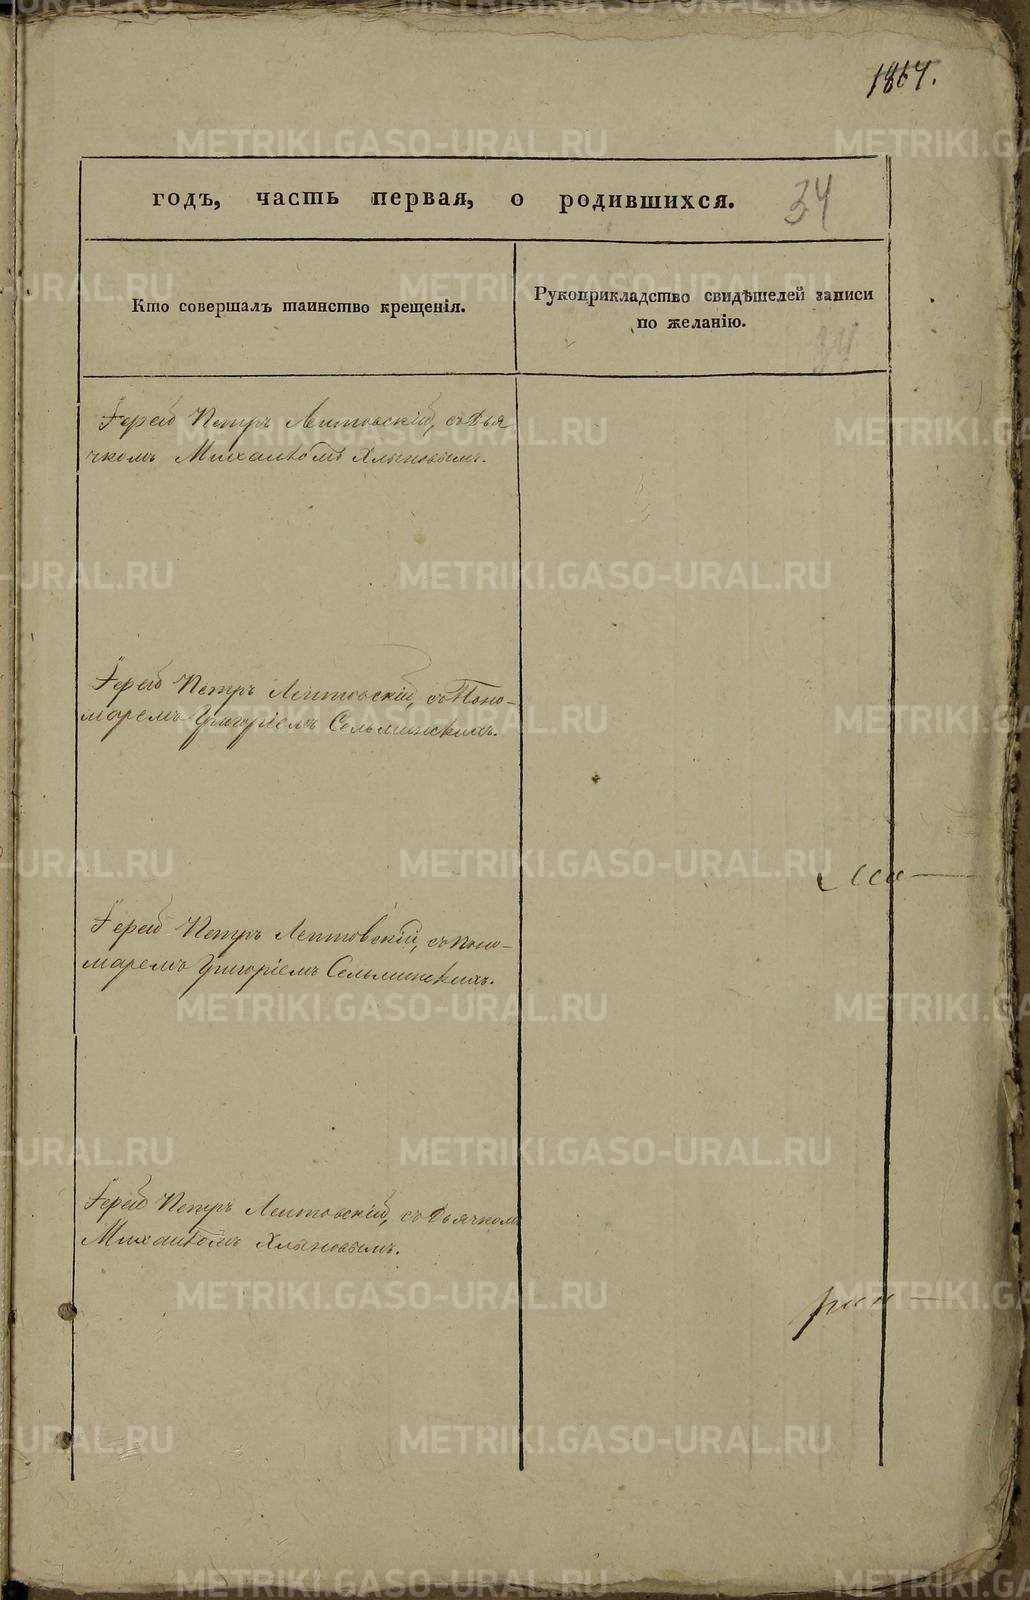 1864.
годъ, часть первая, о родившихся. 34
Кто совершалъ таинство крещенія.
Рукоприкладство свидѣтелей записи
по желанію.
Іерей Петръ Лептовскій, съ Дья
чкомъ Михаиломъ Хлыновымъ.
Іерей Петръ Лептовскій, съ Поно-
маремъ Григоріемъ Сельминскихъ.
Іерей Петръ Лептовскій, съ поно-
маремъ Григоріемъ Сельминскихъ.
Іерей Петръ Лептовскій, съ Дьячкомъ
Михаиломъ Хлыновымъ.
METRIKI.GASO-URAL.RU